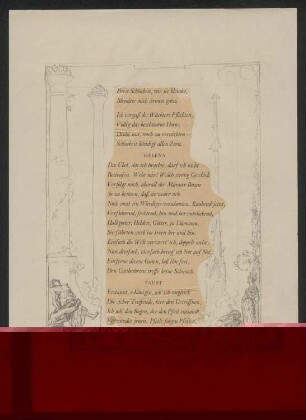 Diese Schönheit, wie sie blendet,
Blendete mich Armen ganz.
Ich vergaß des Wächters Pflichten,
Völlig das beschworne Horn;
Drohe nur, mich zu vernichten –
Schönheit bändigt allen Zorn.
HELENA
Das Übel, das ich brachte, darf ich nicht
Bestrafen. Wehe mir! Welch streng Geschick
Verfolgt mich, überall der Männer Busen
So zu betören, daß sie weder sich
Noch sonst ein Würdiges verschonten. Raubend jetzt,
Verführend, fechtend, hin und her entrückend,
Halbgötter, Helden, Götter, ja Dämonen,
Sie führten mich im Irren her und hin.
Einfach die Welt verwirrt' ich, doppelt mehr;
Nun dreifach, vierfach bring' ich Not auf Not.
Entferne diesen Guten, laß ihn frei;
Den Gottbetörten treffe keine Schmach.
FAUST
Erstaunt, o Königin, seh' ich zugleich
Die sicher Treffende, hier den Getroffnen;
Ich seh' den Bogen, der den Pfeil entsandt,
Verwundet jenen. Pfeile folgen Pfeilen,